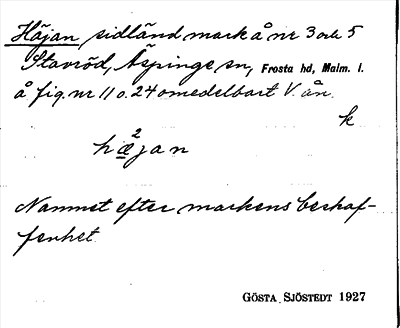 Häjan, sidländ mark å nr 3 och 5
Stavröd, Äspinge sn, Frosta hd, Malm. l.
å fig. nr 11 o. 24 omedelbart V. ån.
k
hæ²jan
Namnet efter markens beskaf-
fenhet.
GÖSTA SJÖSTEDT 1927